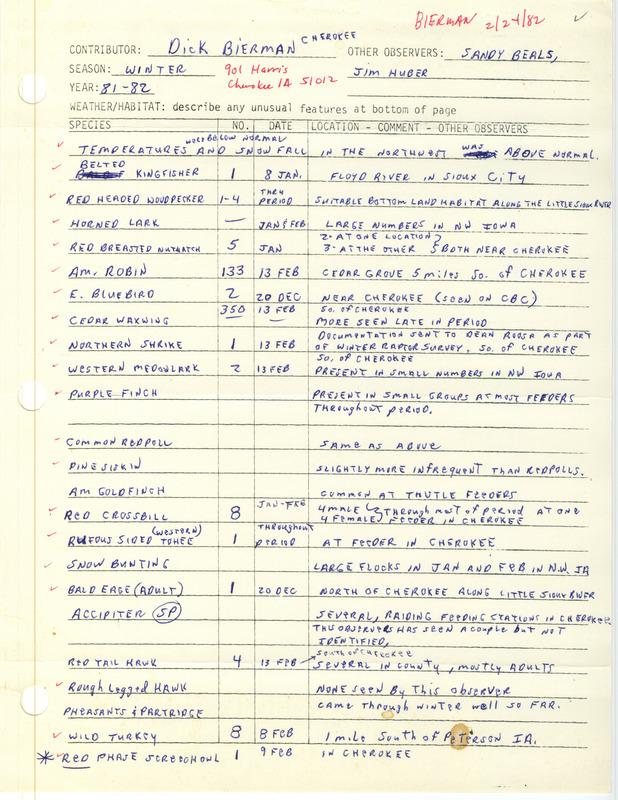 BIERMAN 2/24/82 ✓
CONTRIBUTOR: DICK BIERMAN CHEROKEE OTHER OBSERVERS: SANDY BEALS,
SEASON: WINTER 901 Harris JIM HUBER
YEAR: 81-82 Cherokee IA 51012
WEATHER/HABITAT: describe any unusual features at bottom of page
SPECIES NO. DATE LOCATION - COMMENT - OTHER OBSERVERS
TEMPERATURES WERE BELOW NORMAL AND SNOWFALL IN THE NORTHWEST WAS ABOVE NORMAL.
BELTED KINGFISHER 1 8 JAN. FLOYD RIVER IN SIOUX CITY
RED HEADED WOODPECKER 1-4 THRU PERIOD SUITABLE BOTTOM LAND HABITAT ALONG THE LITTLE SIOUX RIVER
HORNED LARK — JAN & FEB LARGE NUMBERS IN NW IOWA
RED BREASTED NUTHATCH 5 JAN 2-AT ONE LOCATION } 3-AT THE OTHER } BOTH NEAR CHEROKEE
AM. ROBIN 133 13 FEB CEDAR GROVE 5 miles So. of CHEROKEE
E. BLUEBIRD 2 20 DEC NEAR CHEROKEE (SEEN ON CBC)
350 13 FEB SO. OF CHEROKEE
CEDAR WAXWING — — MORE SEEN LATE IN PERIOD
DOCUMENTATION SENT TO DEAN ROOSA AS PART
NORTHERN SHRIKE 1 13 FEB OF WINTER RAPTOR SURVEY. SO. OF CHEROKEE
SO. OF CHEROKEE
WESTERN MEDOWLARK 2 13 FEB PRESENT IN SMALL NUMBERS IN NW IOWA
PURPLE FINCH PRESENT IN SMALL GROUPS AT MOST FEEDERS
THROUGHOUT PERIOD.
COMMON REDPOLL SAME AS ABOVE
PINE SISKIN SLIGHTLY MORE INFREQUENT THAN REDPOLLS.
AM GOLDFINCH COMMON AT THISTLE FEEDERS
RED CROSSBILL 8 JAN-FEB 4 MALE } THROUGH MOST OF PERIOD AT ONE
4 FEMALE } FEEDER IN CHEROKEE
RUFOUS SIDED TOHEE (WESTERN) 1 THROUGHOUT PERIOD AT FEEDER IN CHEROKEE
SNOW BUNTING LARGE FLOCKS IN JAN AND FEB IN N.W. IA
BALD EAGE (ADULT) 1 20 DEC NORTH OF CHEROKEE ALONG LITTLE SIOUX RIVER
ACCIPITER (SP) SEVERAL, RAIDING FEEDING STATIONS IN CHEROKEE
THIS OBSERVERS HAS SEEN A COUPLE BUT NOT
IDENTIFIED,
SOUTH OF CHEROKEE
RED TAIL HAWK 4 13 FEB SEVERAL IN COUNTY, MOSTLY ADULTS
ROUGH LEGGED HAWK NONE SEEN BY THIS OBSERVER
PHEASANTS & PARTRIDGE CAME THROUGH WINTER WELL SO FAR.
WILD TURKEY 8 8 FEB 1 mile SOUTH of PETERSON IA.
* RED PHASE SCREECHOWL 1 9 FEB IN CHEROKEE